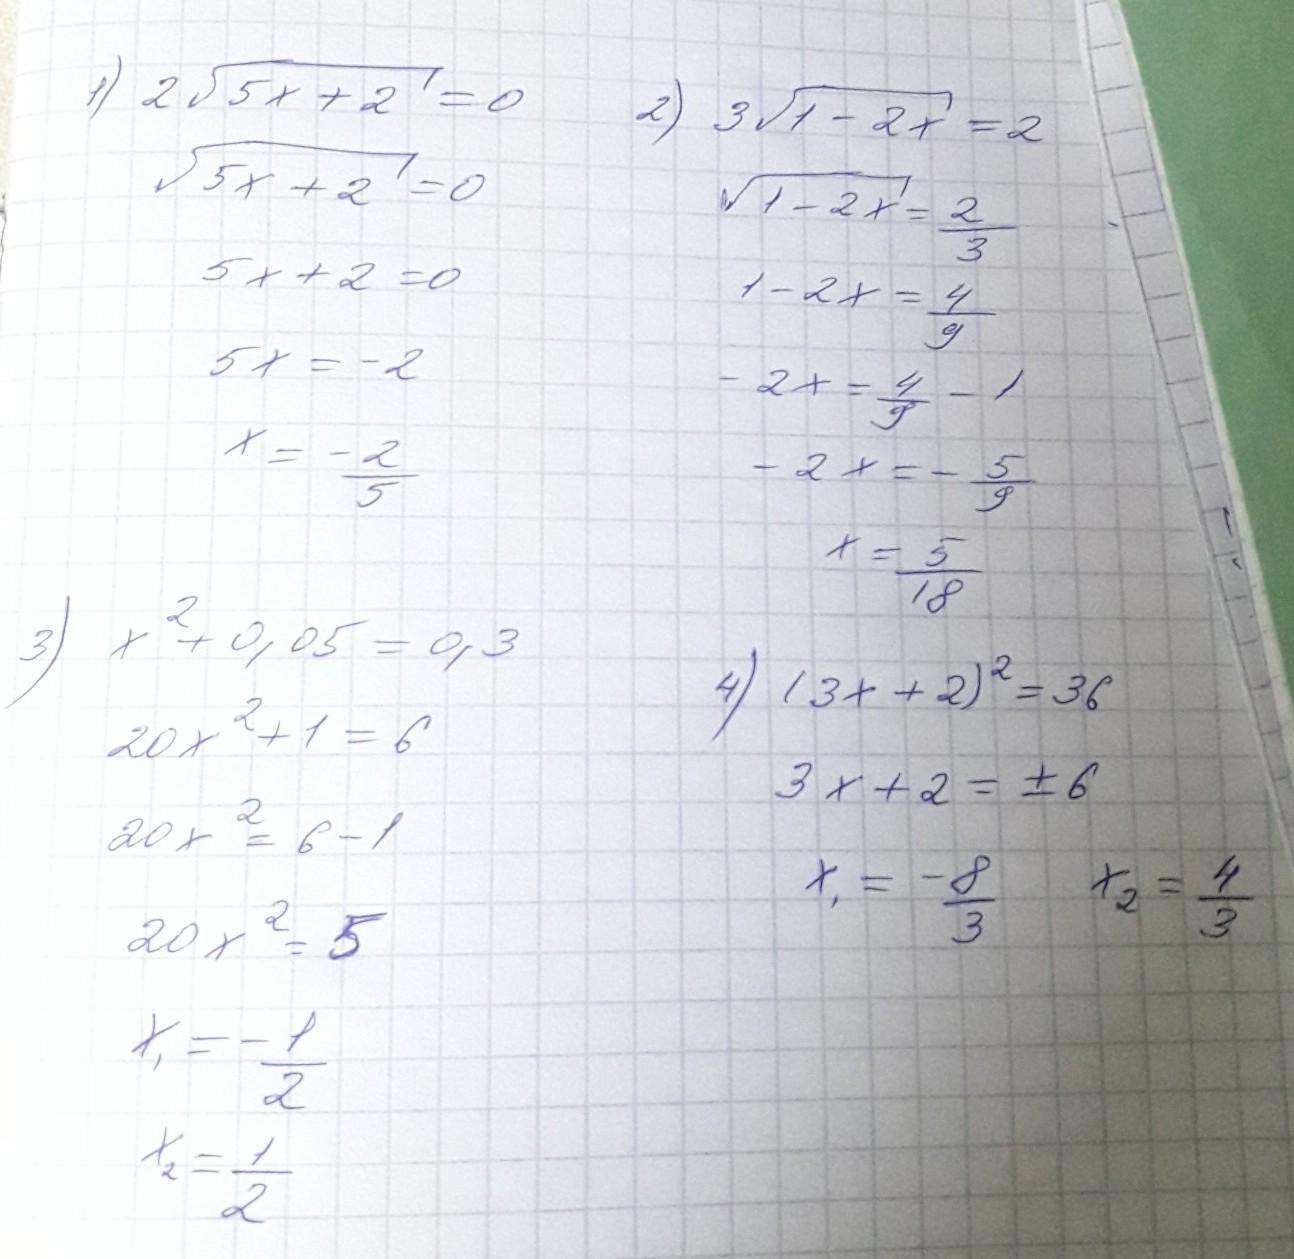 1) 2√(5x + 2) = 0
√(5x + 2) = 0
5x + 2 = 0
5x = -2
x = -2/5
2) 3√(1 - 2x) = 2
√(1 - 2x) = 2/3
1 - 2x = 4/9
-2x = 4/9 - 1
-2x = -5/9
x = 5/18
3) x² + 0,05 = 0,3
20x² + 1 = 6
20x² = 6 - 1
20x² = 5
x₁ = -1/2
x₂ = 1/2
4) (3x + 2)² = 36
3x + 2 = ±6
x₁ = -8/3 x₂ = 4/3